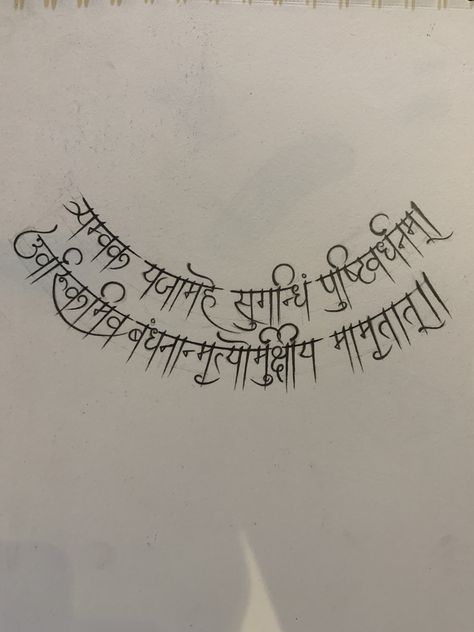 त्र्यम्वक यजामहे सुगन्धिं पुष्टिवर्धनम्।
उर्वारुकमिव बंधनान्मृत्योर्मुक्षीय मामृतात्।।